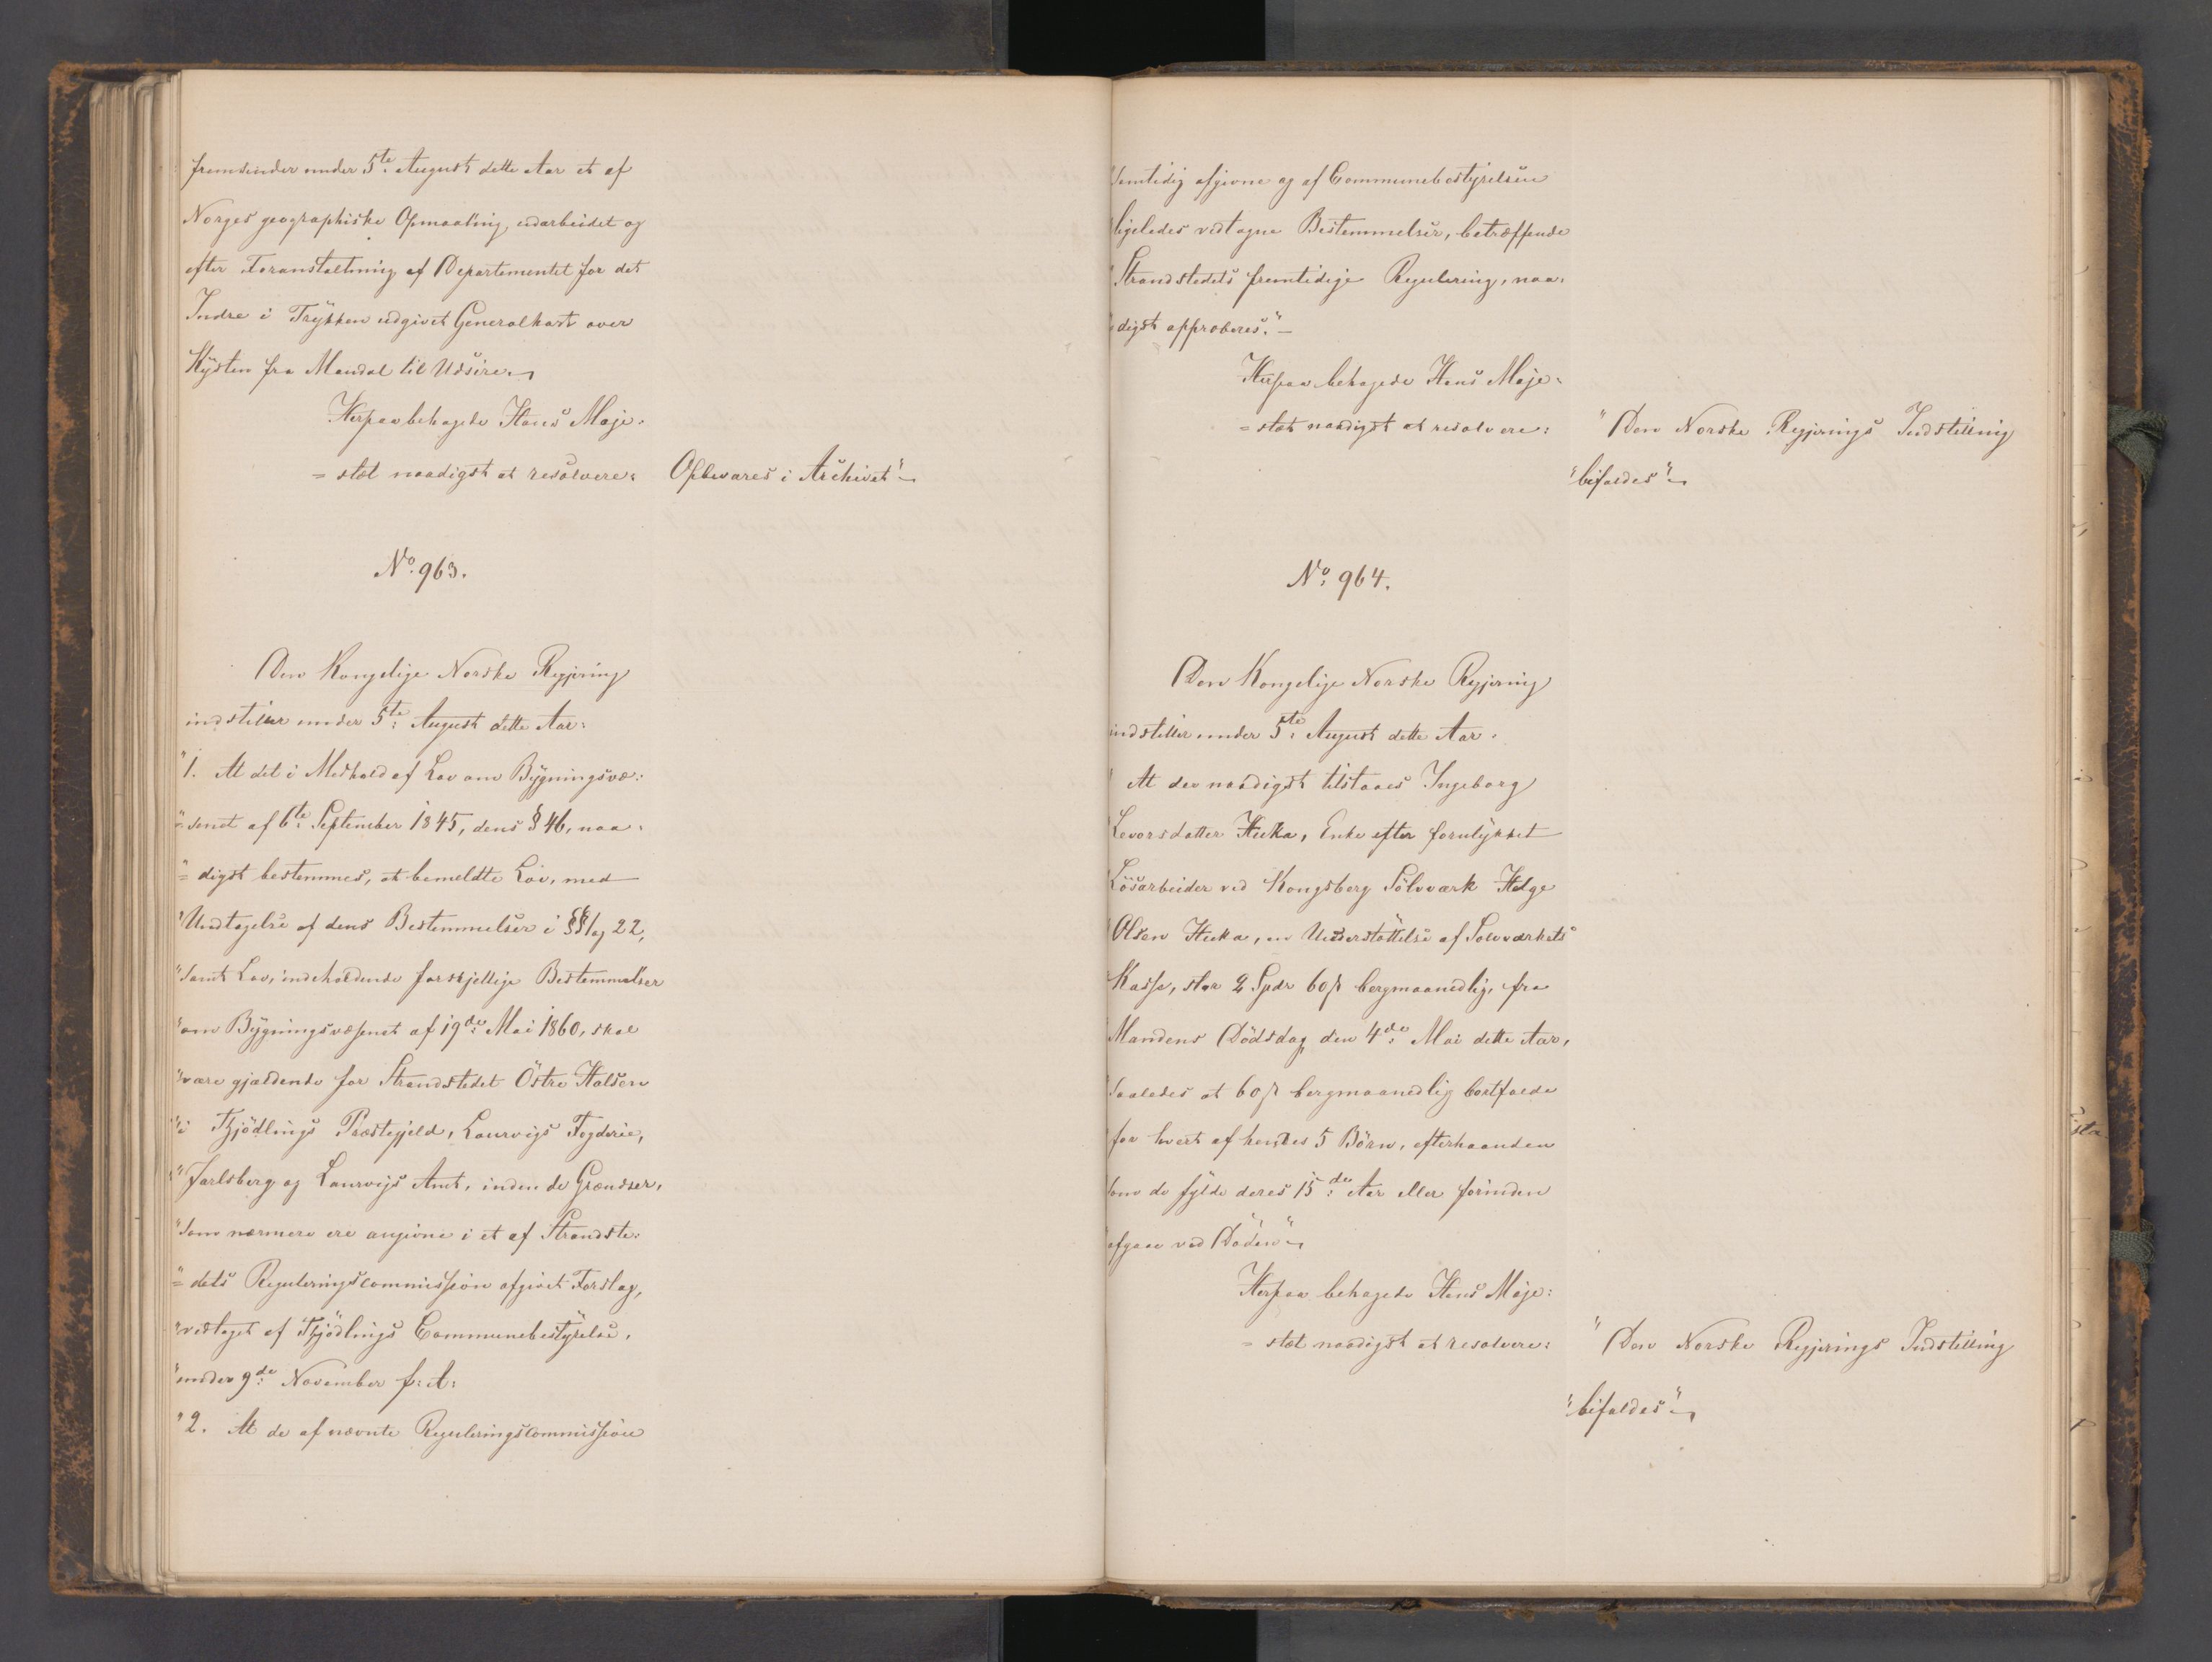 fremsender under 5te August dette Aar et af
Norges geographiske Opmaaling udarbeidet og
efter Foranstaltning af Departementet for det
Indre i Trykken udgivet Generalkart over
Kysten fra Mandal til Udsire.
Herpaa behagede Hans Maje:
= stæt naadigst at resolvere: Opbevares i Archivet"
No. 963.
Den Kongelige Norske Regjering
indstiller under 5te August dette Aar:
"1. At det i Medhold af Lov om Bygningsvæ:
"= senet af 6te September 1845, dens § 46, naa:
"= digst bestemmes, at bemeldte Lov, med
"Undtagelse af dens Bestemmelser i §§ 1 og 22,
"samt Lov, indeholdende forskjellige Bestemmelser
"om Bygningsvæsenet af 19de Mai 1860, skal
"være gjældende for Strandstedet Östre Halsen
"i Tjödlings Præstegjeld, Laurvigs Fogderie,
"Jarlsberg og Laurvigs Amt, inden de Grændser,
"som nærmere ere angivne i et af Strandste:
"= dets Reguleringscommission afgivet Forslag,
"vedtaget af Tjödlings Communebestyrelse,
"under 9de November f: A:
"2. At de af nævnte Reguleringscommission
"samtidig afgivne og af Communebestyrelsen
"ligeledes vedtagne Bestemmelser, betræffende
"Strandstedets fremtidige Regulering, naa:
"digst approberes." –
Herpaa behagede Hans Maje:
= stæt naadigst at resolvere: "Den Norske Regjerings Indstilling
"bifaldes"
No. 964.
Den Kongelige Norske Regjering
indstiller under 5te August dette Aar:
"At der naadigst tilstaaes Ingeborg
"Levorsdatter Huka, Enke efter forulykket
"Lösarbeider ved Kongsberg Sölvværk Helge
"Olsen Huka, en Understöttelse af Sølvværkets
"Kasse, stor 2 Spdr 60 ß bergmaanedlig, fra
"Mandens Dödsdag den 4de Mai dette Aar,
"saaledes at 60 ß bergmaanedlig bortfalde
"for hvert af hendes 5 Börn, efterhaanden
"som de fylde deres 15de Aar eller forinden
"afgaae ved Döden"
Herpaa behagede Hans Maje:
= stæt naadigst at resolvere: "Den Norske Regjerings Indstilling
"bifaldes"